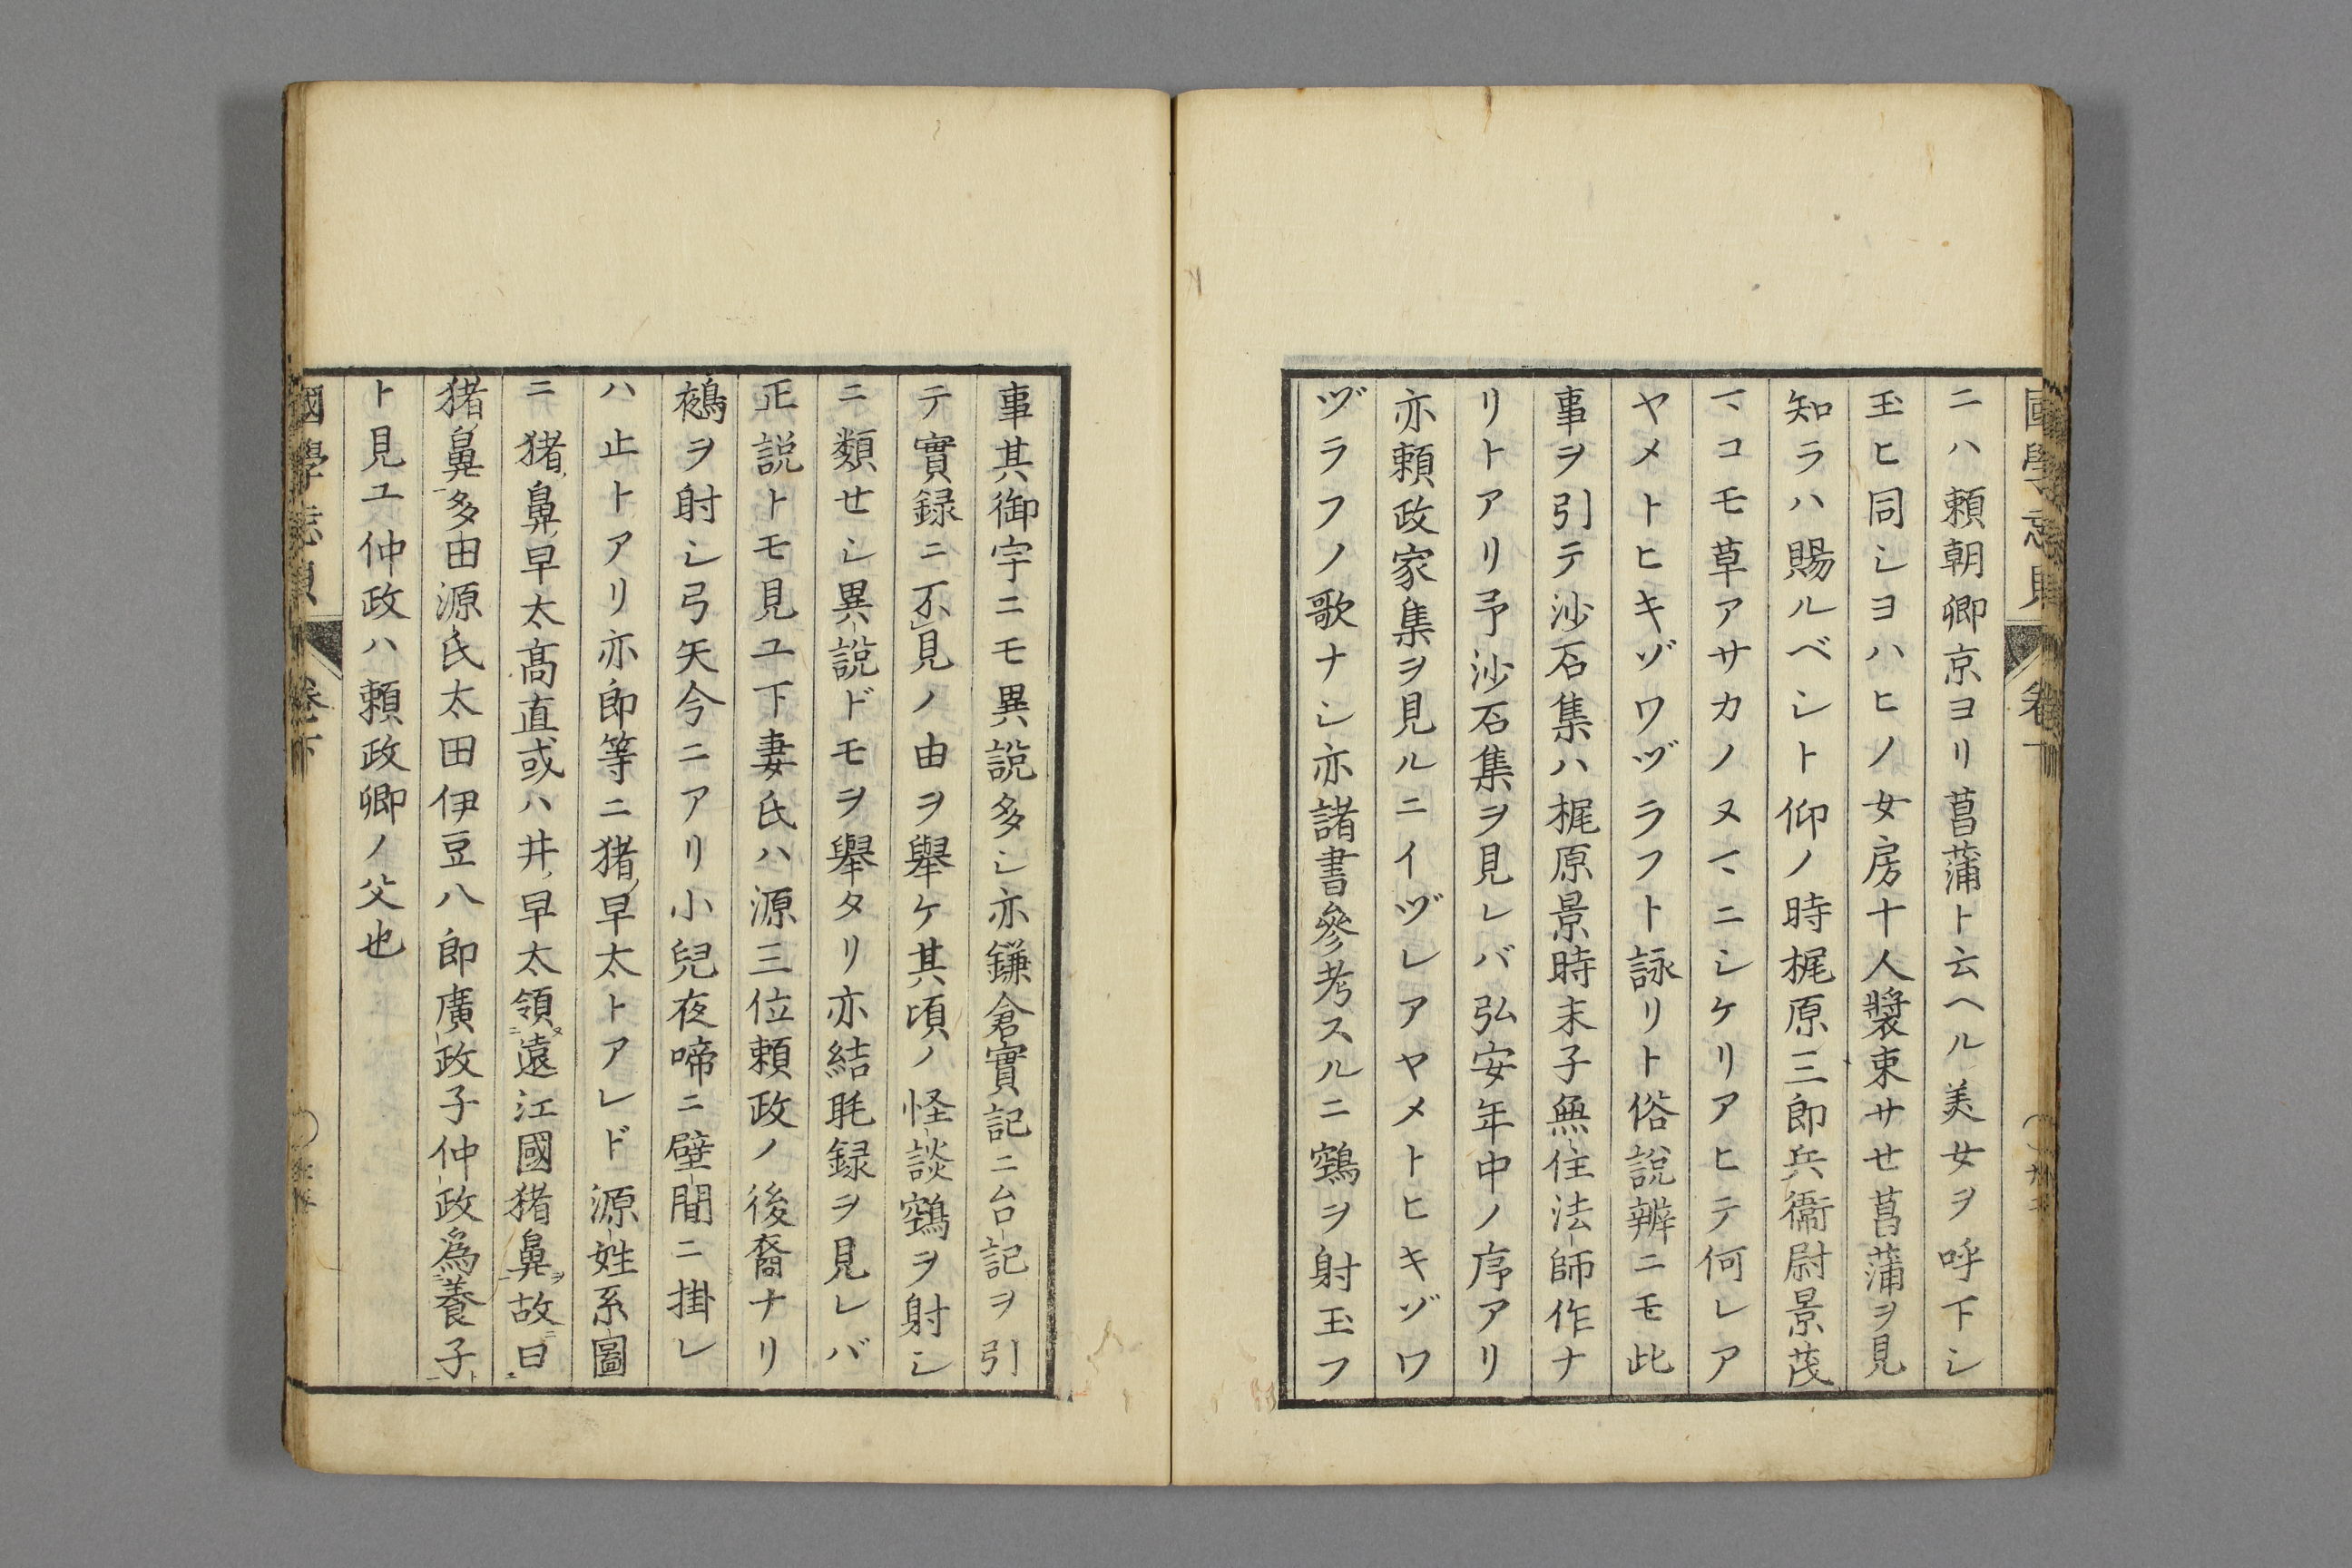 ニハ頼朝卿京ヨリ菖蒲ト云ヘル美女ヲ呼下シ
玉ヒ同シヨハヒノ女房十人裝束サセ菖蒲ヲ見
知ラハ賜ルベシト仰ノ時梶原三郎兵衞尉景茂
マコモ草アサカノヌマニシケリアヒテ何レア
ヤメトヒキゾワヅラフト詠リト俗說辨ニモ此
事ヲ引テ沙石集ハ梶原景時末子無住法師作ナ
リトアリ予沙石集ヲ見レバ弘安年中ノ序アリ
亦頼政家集ヲ見ルニイヅレアヤメトヒキゾワ
ヅラフノ歌ナシ亦諸書參考スルニ鵼ヲ射玉フ
事其御宇ニモ異說多シ亦鎌倉實記ニ台記ヲ引
テ實録ニ不見ノ由ヲ舉ケ其頃ノ怪談鵼ヲ射シ
ニ類セシ異說ドモヲ舉タリ亦結毦録ヲ見レバ
正説トモ見ユ下妻氏ハ源三位頼政ノ後裔ナリ
鵺ヲ射シ弓矢今ニアリ小兒夜啼ニ壁間ニ掛レ
ハ止トアリ亦郎等ニ猪早太トアレド源姓系圖
ニ猪鼻早太髙直或ハ井早太領遠江國猪鼻故曰
猪鼻多田源氏太田伊豆八郎廣政子仲政爲養子
ト見ユ仲政ハ頼政卿ノ父也
國學忘貝
卷下